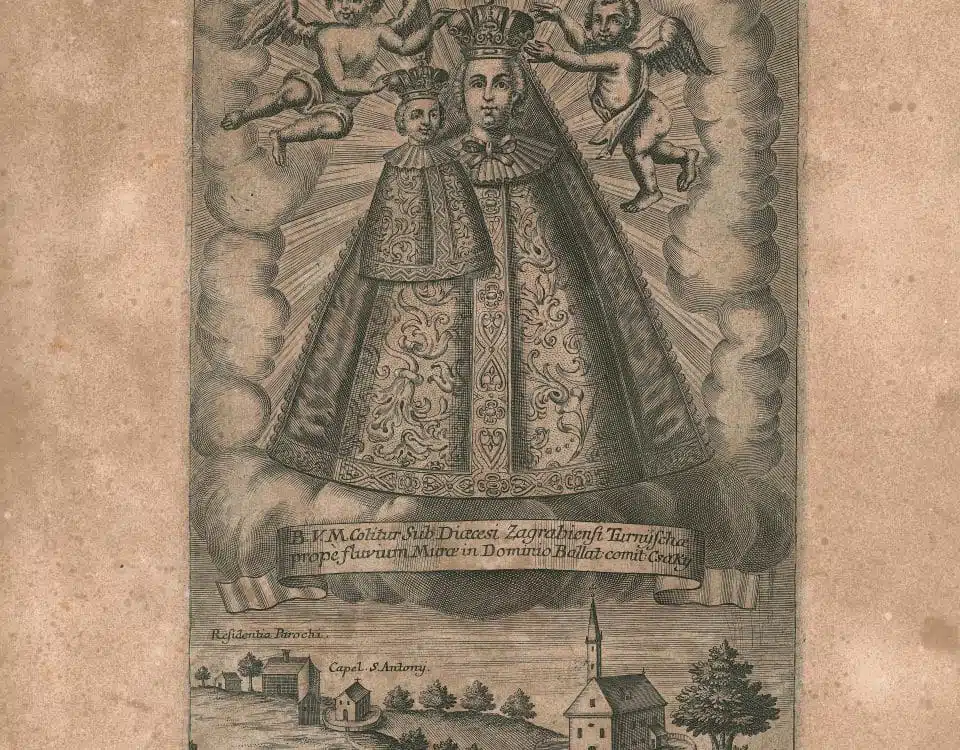 B. V. M. Colitur Sub Diœcesi Zagrabiensi Turnischæ
prope fluvium Muræ in Dominio Ballat comit Csaky
Residentia Parochi.
Capel. S. Antony.